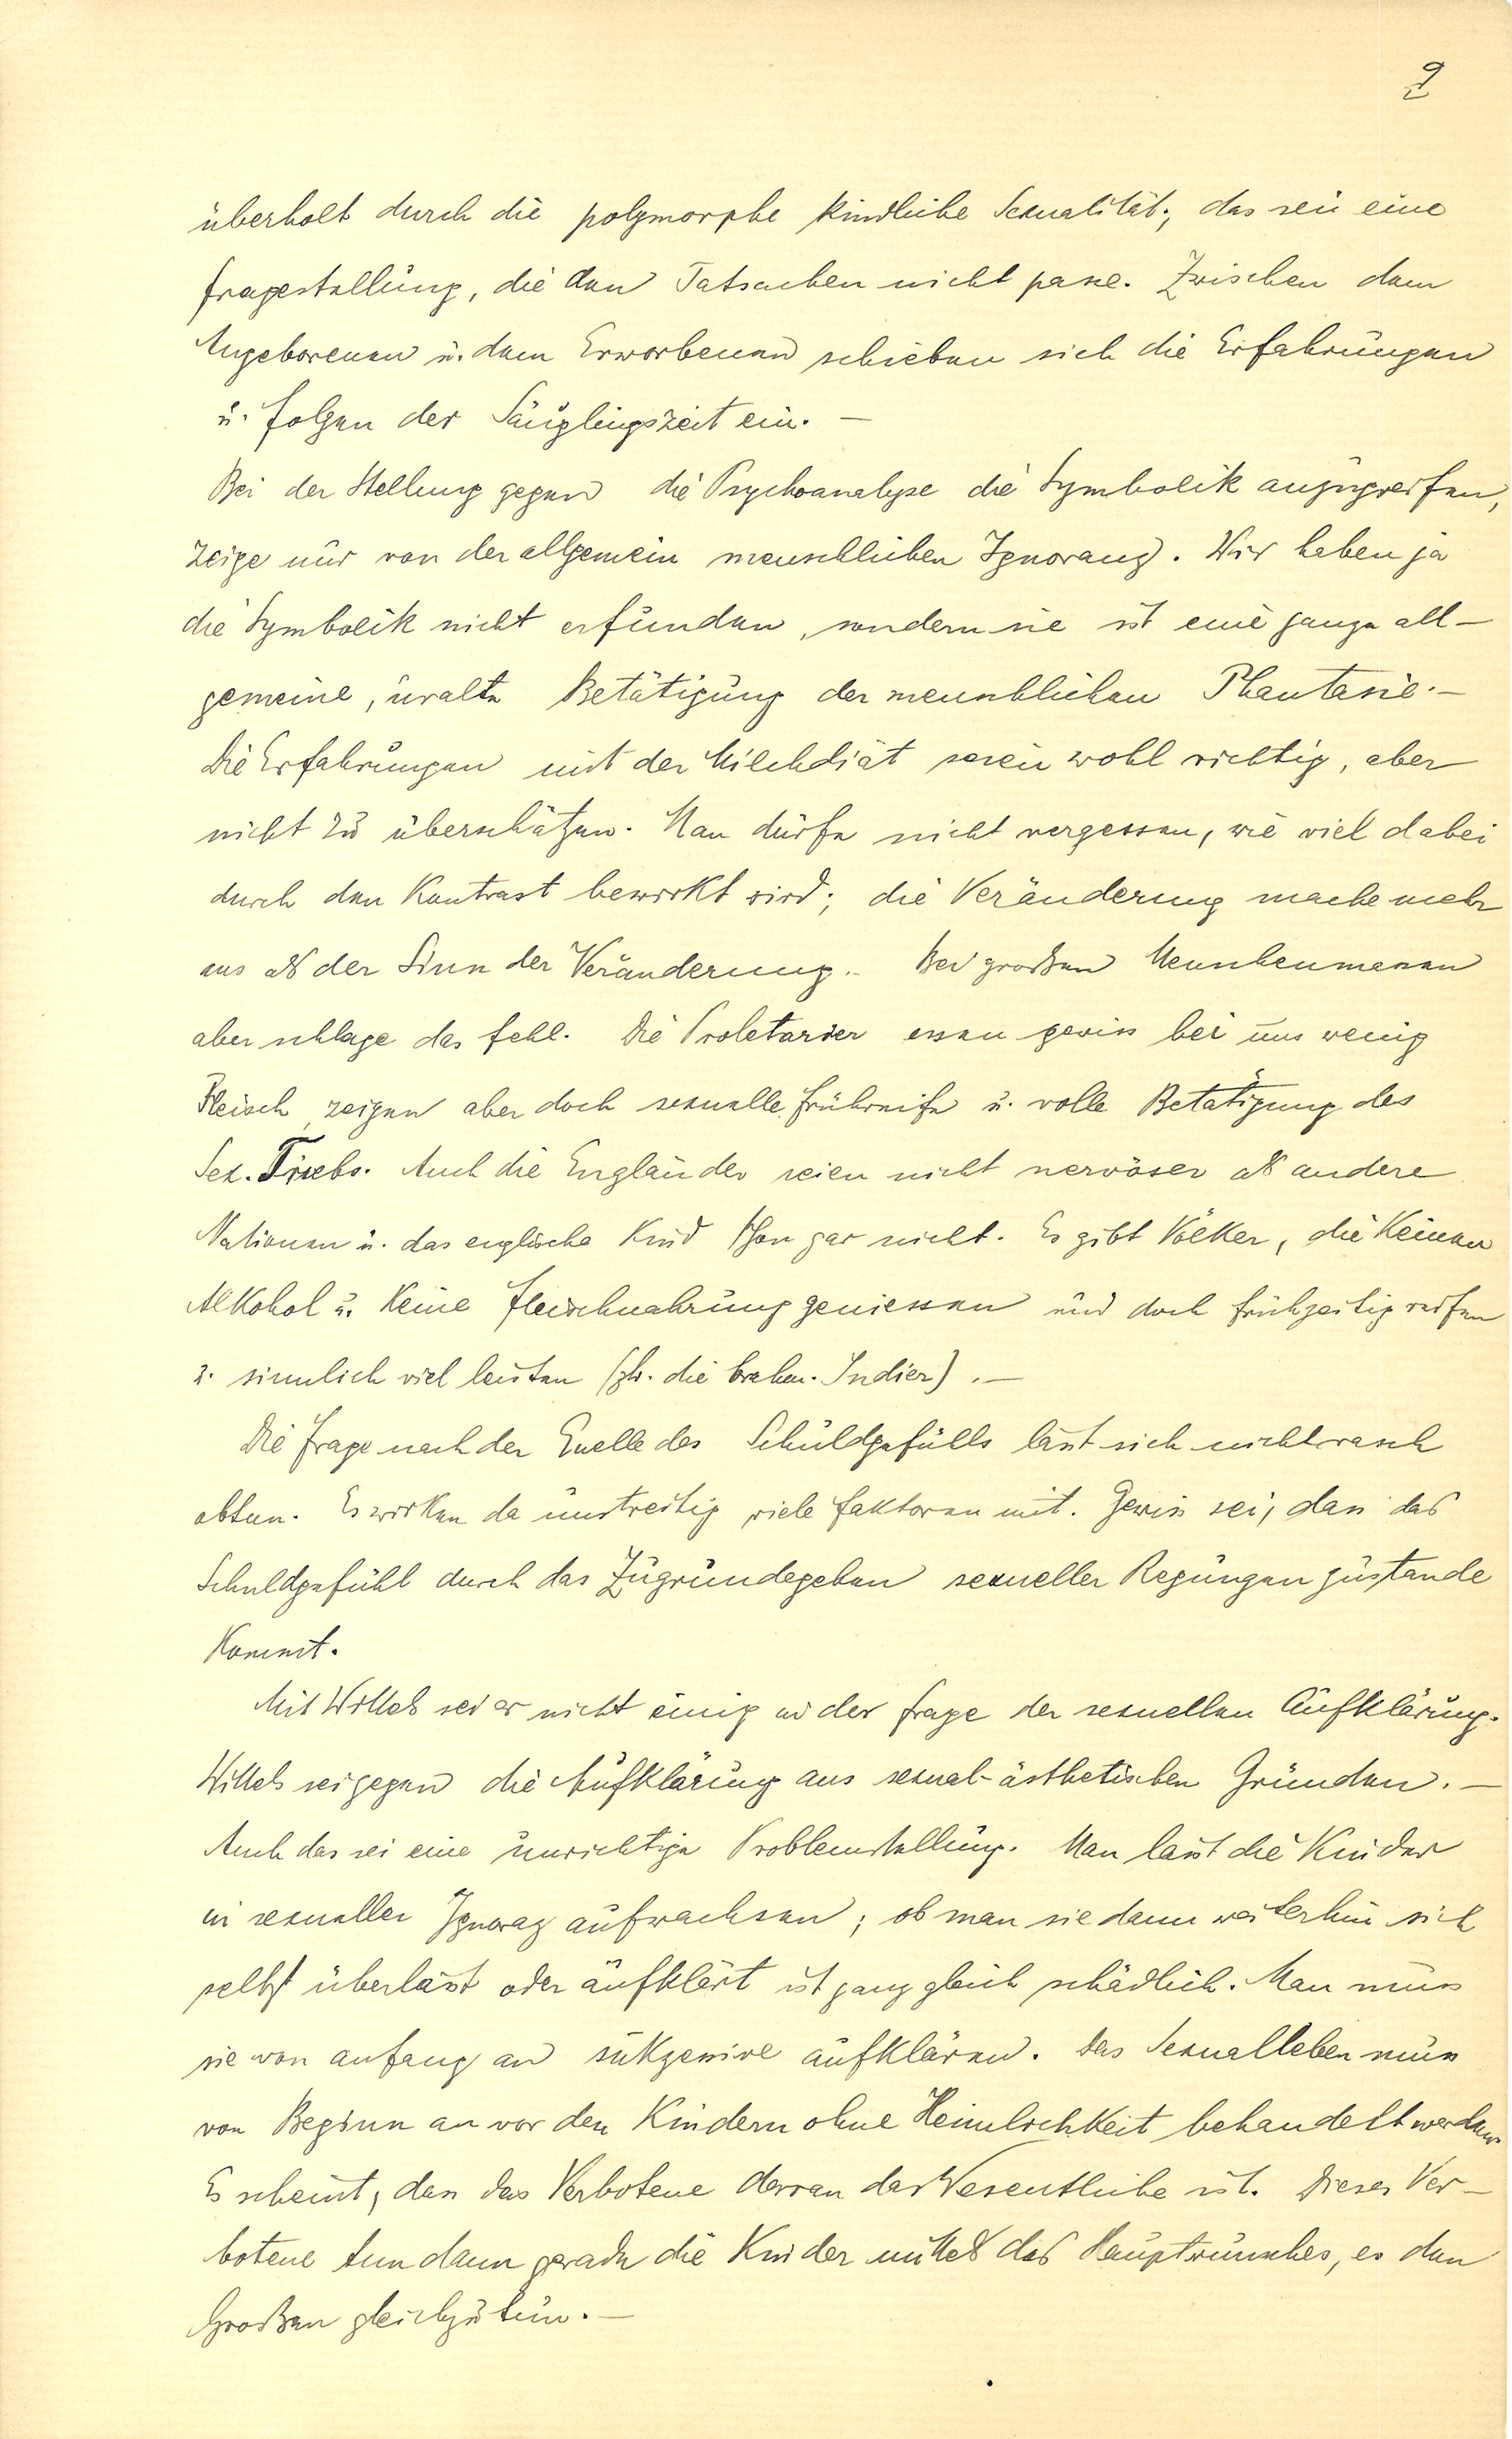 9
überholt durch die polymorphe kindliche Sexualität; das sei eine
Fragestellung, die den Tatsachen nicht passe. Zwischen dem
Angeborenen u. dem Erworbenen schieben sich die Erfahrungen
u. Folgen der Säuglingszeit ein. —
Bei der Stellung gegen die Psychoanalyse die Symbolik anzugreifen,
zeige nur von der allgemein menschlichen Ignoranz. Wir haben ja
die Symbolik nicht erfunden, sondern sie ist eine ganze all-
gemeine, uralte Betätigung der menschlichen Phantasie. —
Die Erfahrungen mit der Milchdiät seien wohl richtig, aber
nicht zu überschätzen. Man dürfe nicht vergessen, wie viel dabei
durch den Kontrast bewirkt wird; die Veränderung mache mehr
aus als der Sinn der Veränderung. Bei großen Menschenmassen
aber schlage das fehl. Die Proletarier essen gewiss bei uns wenig
Fleisch, zeigen aber doch sexuelle Frühreife u. volle Betätigung des
Sex. Triebs. Auch die Engländer seien nicht nervöser als andere
Nationen u. das englische Kind schon gar nicht. Es gibt Völker, die keinen
Alkohol u. keine Fleischnahrung geniessen und doch frühzeitig reifen
u. sinnlich viel leisten (zb. die brahm. Indier). —
Die Frage nach der Quelle des Schuldgefühls lässt sich nicht rasch
abtun. Es wirken da unstreitig viele Faktoren mit. Gewiss sei, dass das
Schuldgefühl durch das Zugrundegehen sexueller Regungen zustande
kommt.
Mit Wittels sei er nicht einig in der Frage der sexuellen Aufklärung.
Wittels sei gegen die Aufklärung aus sexual-ästhetischen Gründen. —
Auch das sei eine unrichtige Problemstellung. Man lässt die Kinder
in sexueller Ignoranz aufwachsen; ob man sie dann weiterhin sich
selbst überlässt oder aufklärt ist ganz gleich schädlich. Man muss
sie von anfang an sukzessive aufklären. Das Sexualleben muss
von Beginn an vor den Kindern ohne Heimlichkeit behandelt werden.
Es scheint, dass das Verbotene daran das Wesentliche ist. Dieses Ver-
botene tun dann gerade die Kinder mittels des Hauptwunsches, es den
Großen gleichzutun. —